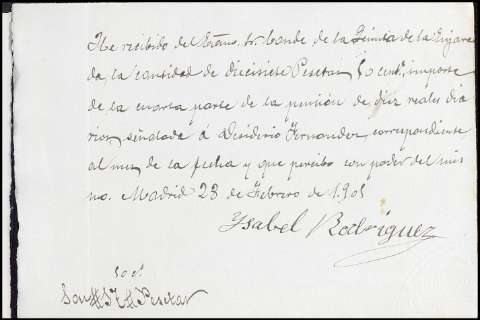 He recibido del Excmo. Sr. Conde de la Quinta de la Enjara
da, la cantidad de diecisiete Pesetas 50 cents. importe
de la cuarta parte de la pensión de diez reales dia
rios señalada á Desiderio Fernandez, correspondiente
al mes de la fecha y que percibo con poder del mis
mo. Madrid 23 de Febrero de 1901
Ysabel Rodríguez
50 cs.
Son # 17 # Pesetas